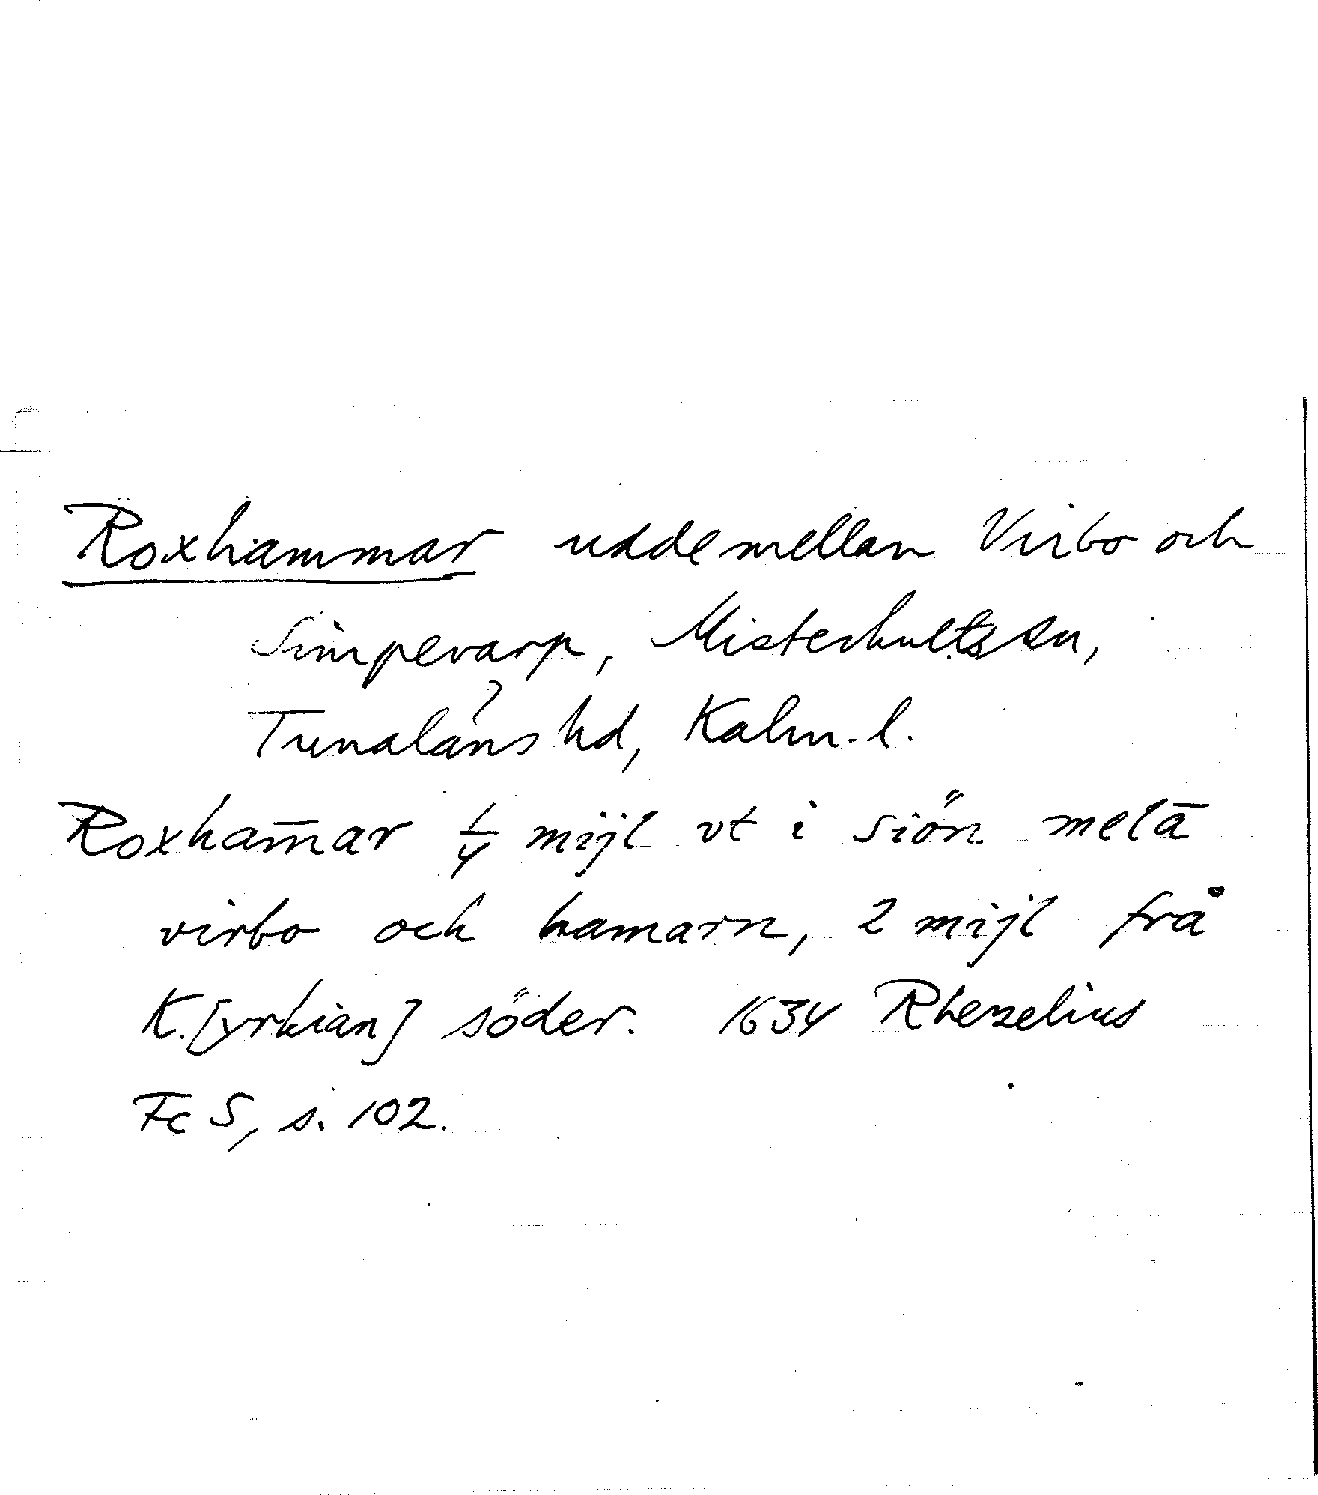 Roxhammar udde mellan Virbo och
Simpevarp, Misterhults sn,
Tunaläns hd, Kalm. l.
Roxham̄ar 1/4 mijl vt i siön melā
virbo och hamarn, 2 mijl frå
K.[yrkian] söder. 1634 Rhezelius
Fc 5, s. 102.